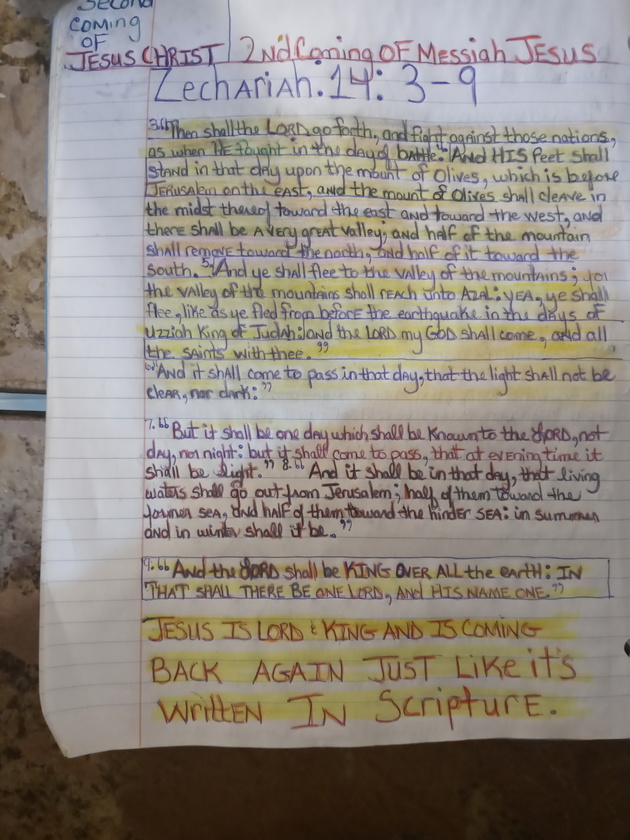 SECOND
COMING
OF
JESUS CHRIST
2nd Coming OF Messiah JESUS
Zechariah. 14: 3-9
3.“Then shall the LORD go forth, and fight against those nations,
as when HE fought in the day of battle.” “And HIS feet shall
stand in that day upon the mount of Olives, which is before
JERUSALEM on the EAST, and the mount of Olives shall cleave in
the midst thereof toward the east and toward the west, and
there shall be a very great valley; and half of the mountain
shall remove toward the north, and half of it toward the
south. 5“And ye shall flee to the valley of the mountains; for
the valley of the mountains shall REACH unto AZAL: YEA, ye shall
flee, like as ye fled from before the earthquake in the days of
Uzziah King of Judah: and the LORD my GOD shall come, and all
the SAINTS with thee.”
6“And it shall come to pass in that day, that the light shall not be
clear, nor dark:”
7.“But it shall be one day which shall be known to the LORD, not
day, nor night: but it shall come to pass, that at evening time it
shall be light.” 8.“And it shall be in that day, that living
waters shall go out from Jerusalem; half of them toward the
former sea, and half of them toward the hinder SEA: in summer
and in winter shall it be.”
9.“And the LORD shall be KING OVER ALL the earth: IN
THAT SHALL THERE BE ONE LORD, AND HIS NAME ONE.”
JESUS IS LORD & KING AND IS COMING
BACK AGAIN JUST LIKE it's
WRittEN IN SCRIPTURE.